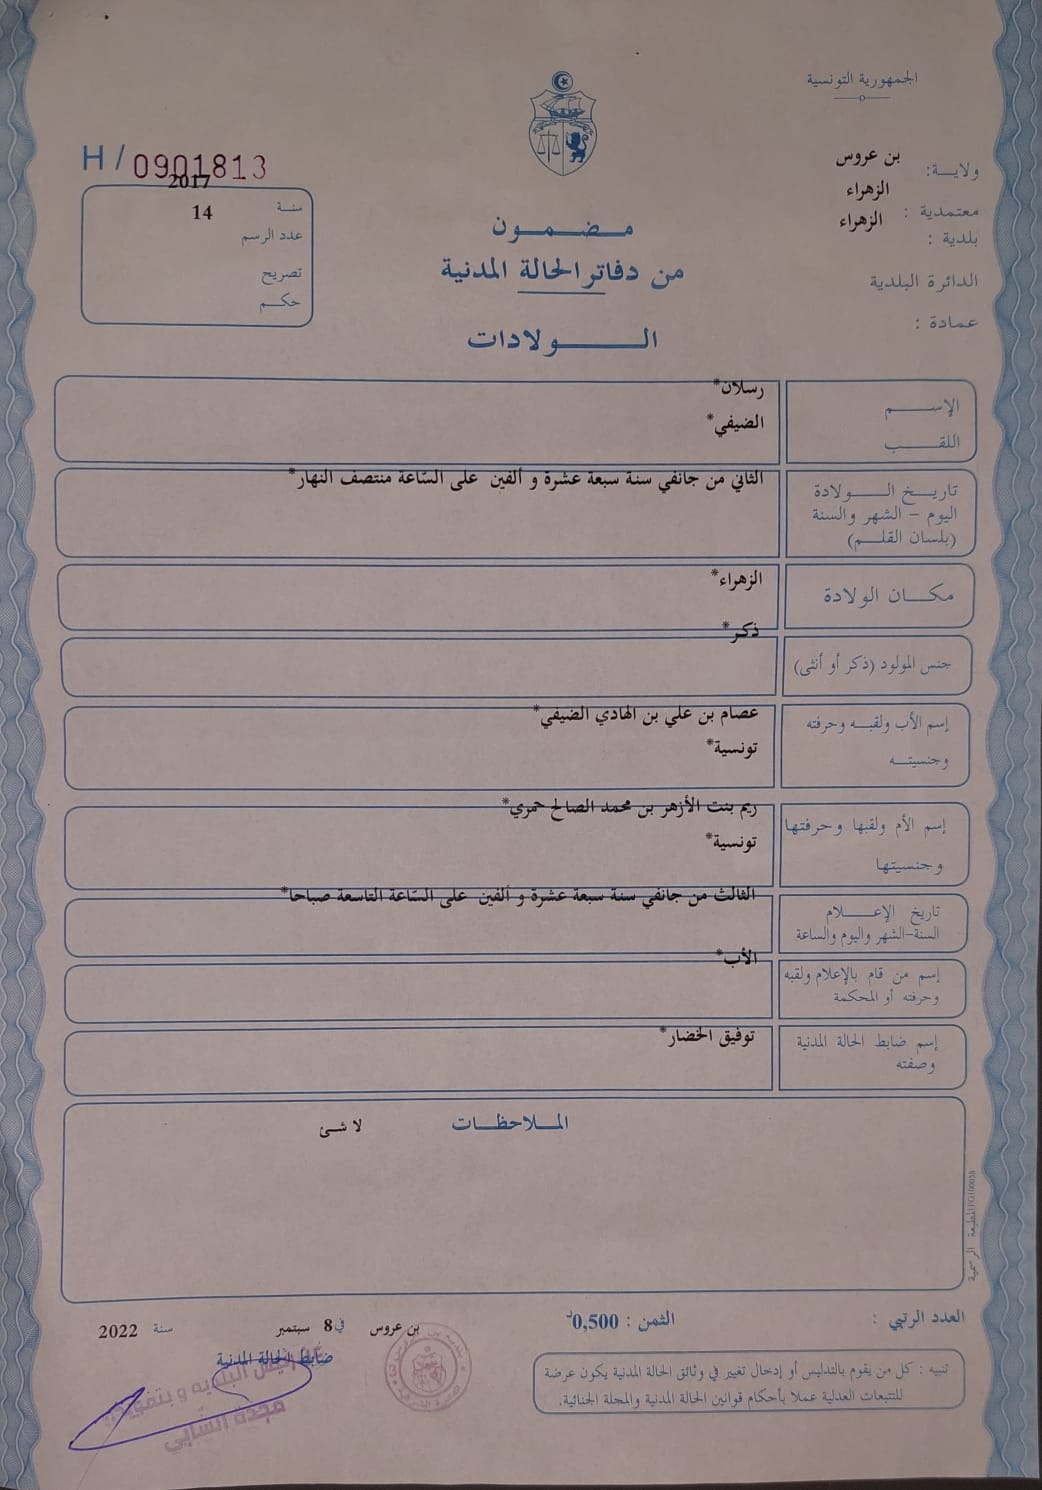 الجمهورية التونسية
H / 0901813
ولايـــة: بن عروس
معتمدية : الزهراء
بلدية : الزهراء
الدائرة البلدية
عمادة :
سنـة 2017
عدد الرسم 14
تصريح
حكـم
مـضـمـون
من دفاتر الحالة المدنية
الـــولادات
الإســـم رسلان*
اللقـب الضيفي*
تاريـخ الـــولادة
اليوم – الشهر والسنة
(بلسان القلـم)
الثاني من جانفي سنة سبعة عشرة و ألفين على السّاعة منتصف النهار*
مكـــان الولادة الزهراء*
جنس المولود (ذكر أو أنثى) ذكر*
إسم الأب ولقبـه وحرفته
وجنسيتـه
عصام بن علي بن الهادي الضيفي*
تونسية*
إسم الأم ولقبها وحرفتها
وجنسيتها
ريم بنت الأزهر بن محمد الصالح حمري*
تونسية*
تاريخ الإعـــلام
السنة-الشهر واليوم والساعة
الثالث من جانفي سنة سبعة عشرة و ألفين على السّاعة التاسعة صباحا*
إسم من قام بالإعلام ولقبه
وحرفته أو المحكمة
الأب*
إسم ضابط الحالة المدنية
وصفته
توفيق الخضار*
المـلاحظـات
لا شئ
المطبعة الرسمية
العدد الرتبي :
الثمن : 0,500د
بن عروس في 8 سبتمبر سنة 2022
ضابط الحالة المدنية
تنبيه : كل من يقوم بالتدليس أو إدخال تغيير في وثائق الحالة المدنية يكون عرضة
للتتبعات العدلية عملا بأحكام قوانين الحالة المدنية والمجلة الجنائية.